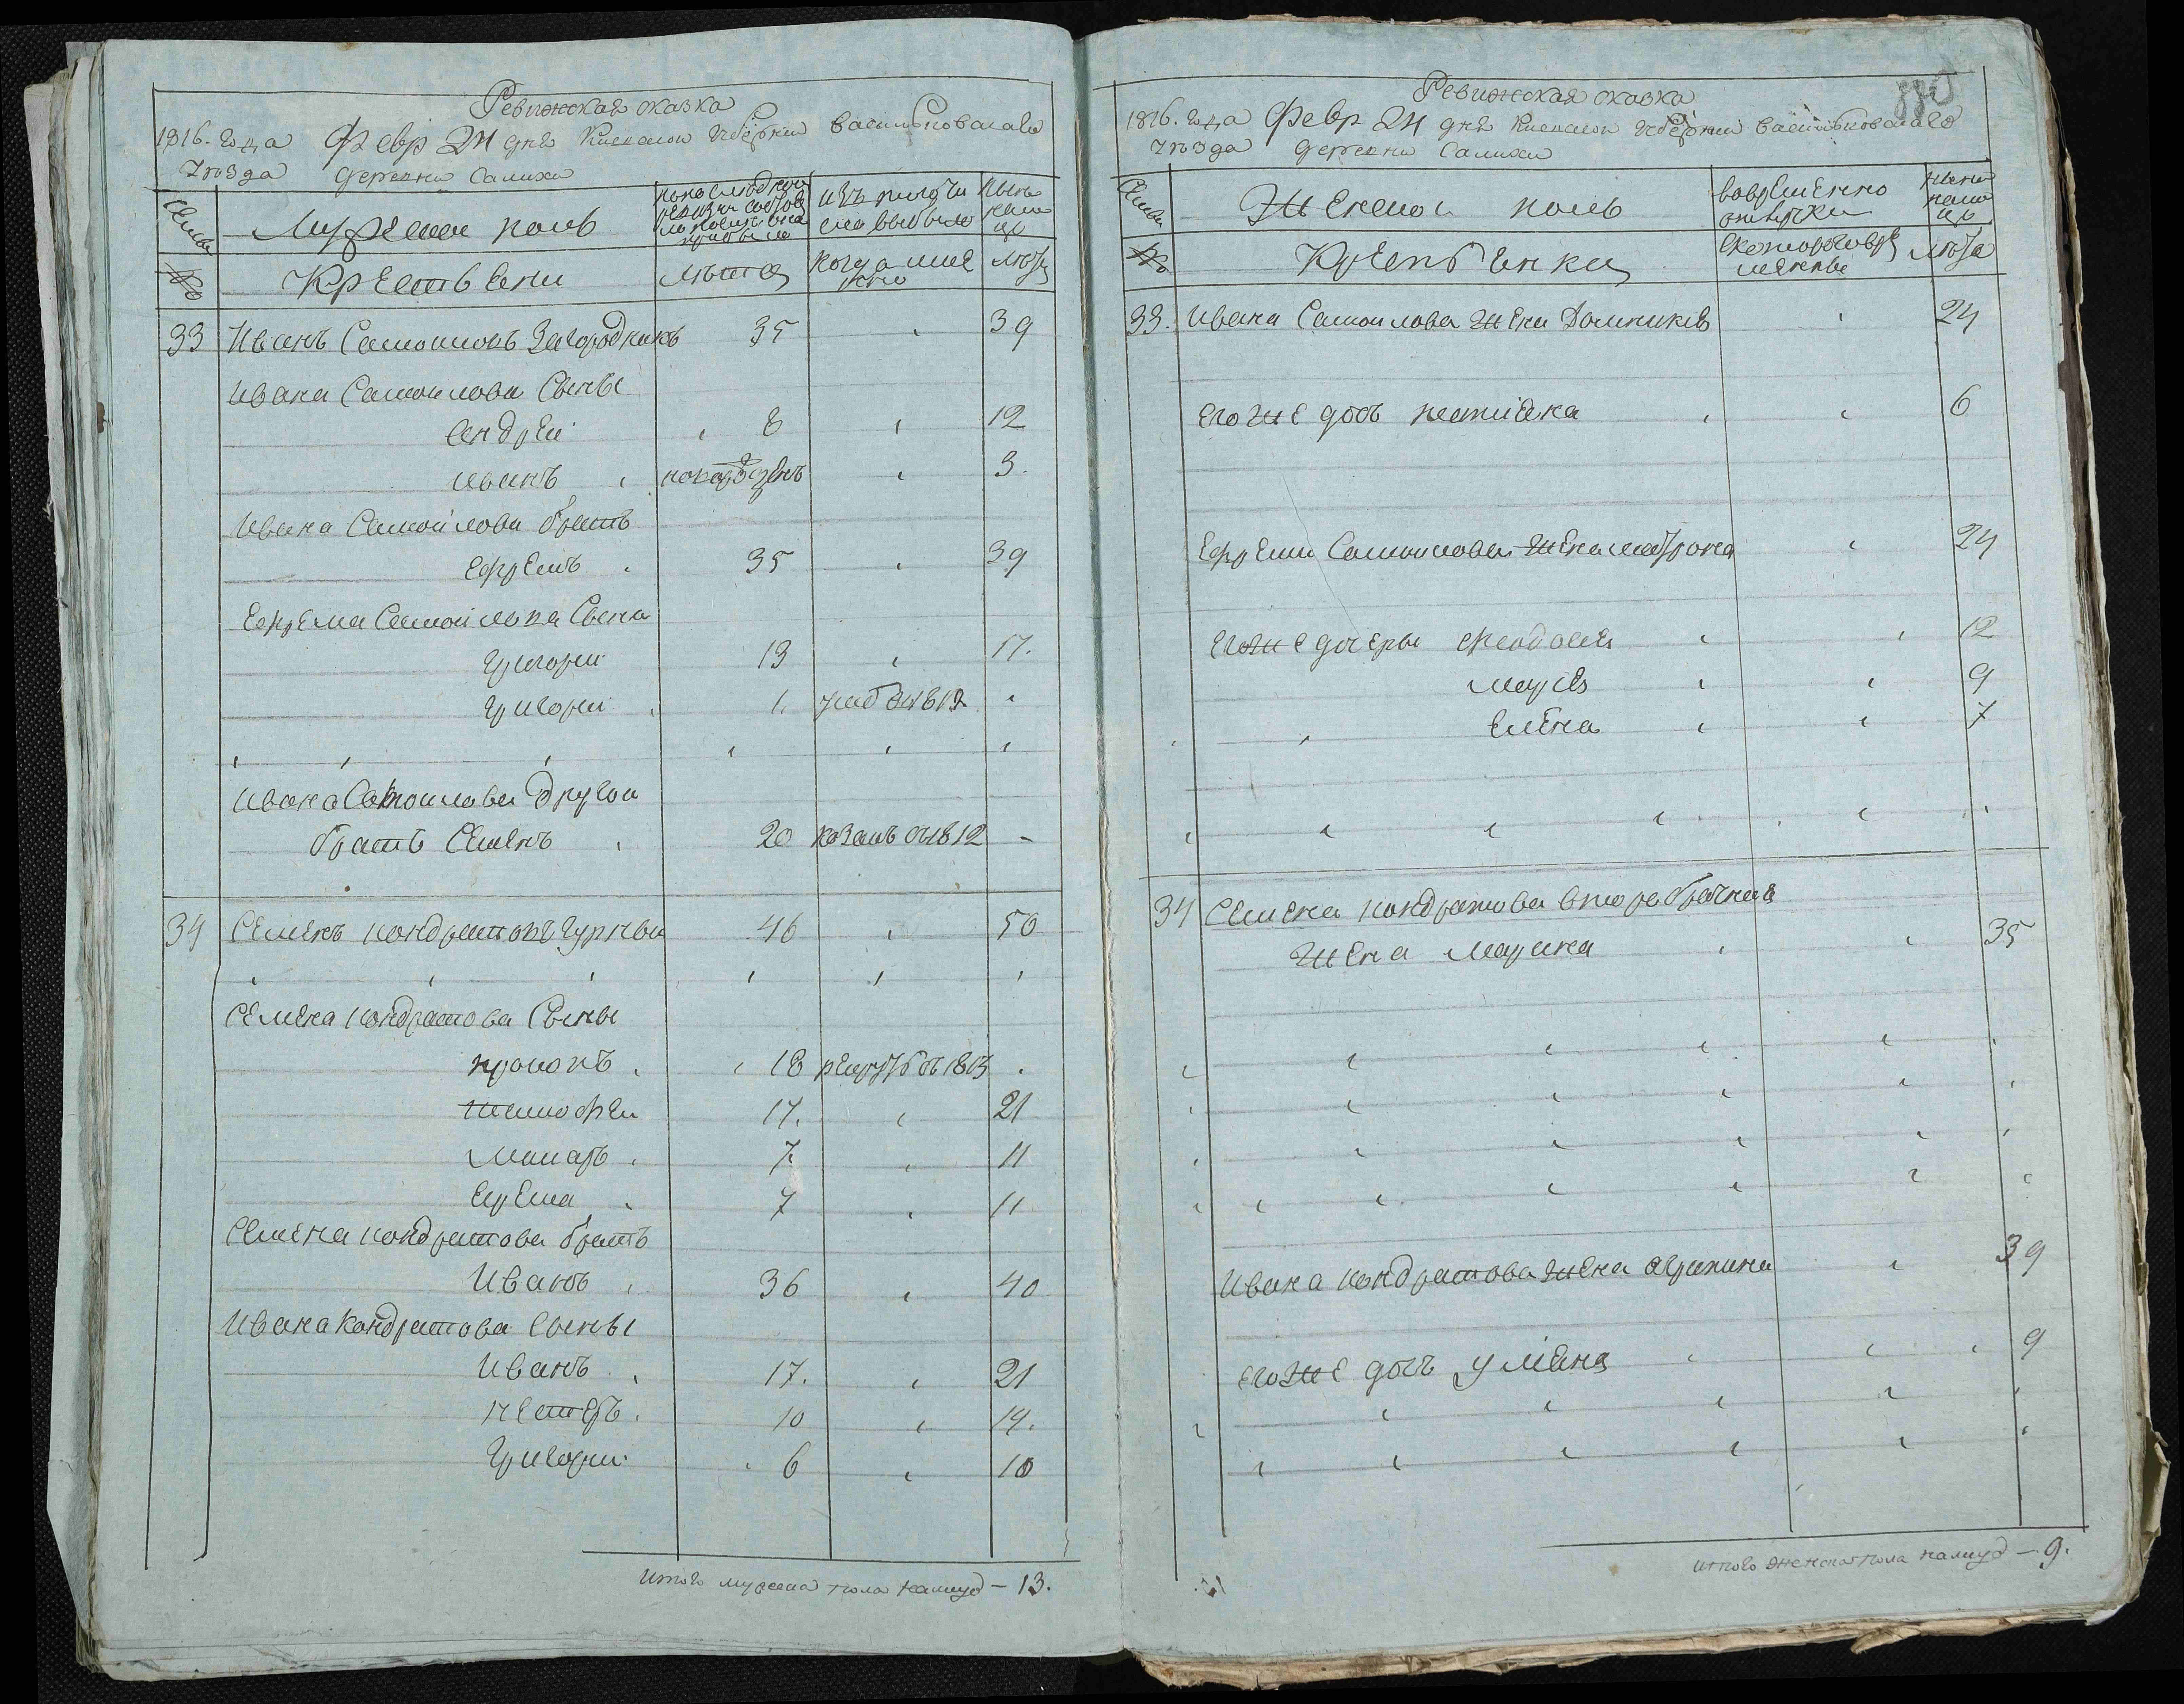 Ревижская сказка
1816. года Февр 24 дня Киевской Губернии Васильковскаго
Уезда Деревни Салихи
Семьи Мужеской полъ изъ того числа выбыло ныне на лицо
№ Крестьяни лета когда имянно лета
33 Иванъ Самоиловъ Загородникъ 35 39
Ивана Самоилова Сыны
Андреи 8 12
иванъ новорожденъ 3.
Ивана Самоилова братъ
Ефремъ 35 39
Ефрема Самоилова Сына
Григории 13 17.
Григории 1. умре въ 1812
Ивана Самоилова другои
братъ Семенъ 20 казакъ съ 1812 -
34 Семенъ кондратовъ 46 50
Семена кондратова Сыны
прокопъ 18 рекрутъ въ 1813
Тимофеи 17. 21
Макаръ 7 11
Ерема 7 11
Семена кондратова братъ
Иванъ 36 40
Ивана Кондратова Сыны
Иванъ 17. 21
нестеръ 10 14.
Григории 6 10
Итого мужеска пола налицо – 13.
880
Ревижская сказка
1816. года Февр 24 дня Киевской Губернии Васильковскаго
Уезда Деревни Салихи
Семьи Женской полъ во временно отлучки ныне на лицо
№ Крестьянки лета
33. Ивана Самоилова жена Домникия 24
его же дочь 6
Ефрема Самоилова жена матрона 24
его же дочеры Феодосия 12
мария 9
Елена 7
34 Семена кондратова второбрачная
жена марина 35
Ивана кондратова жена агрипина 39
его же дочь улияна 9
итого женска пола налицо – 9.